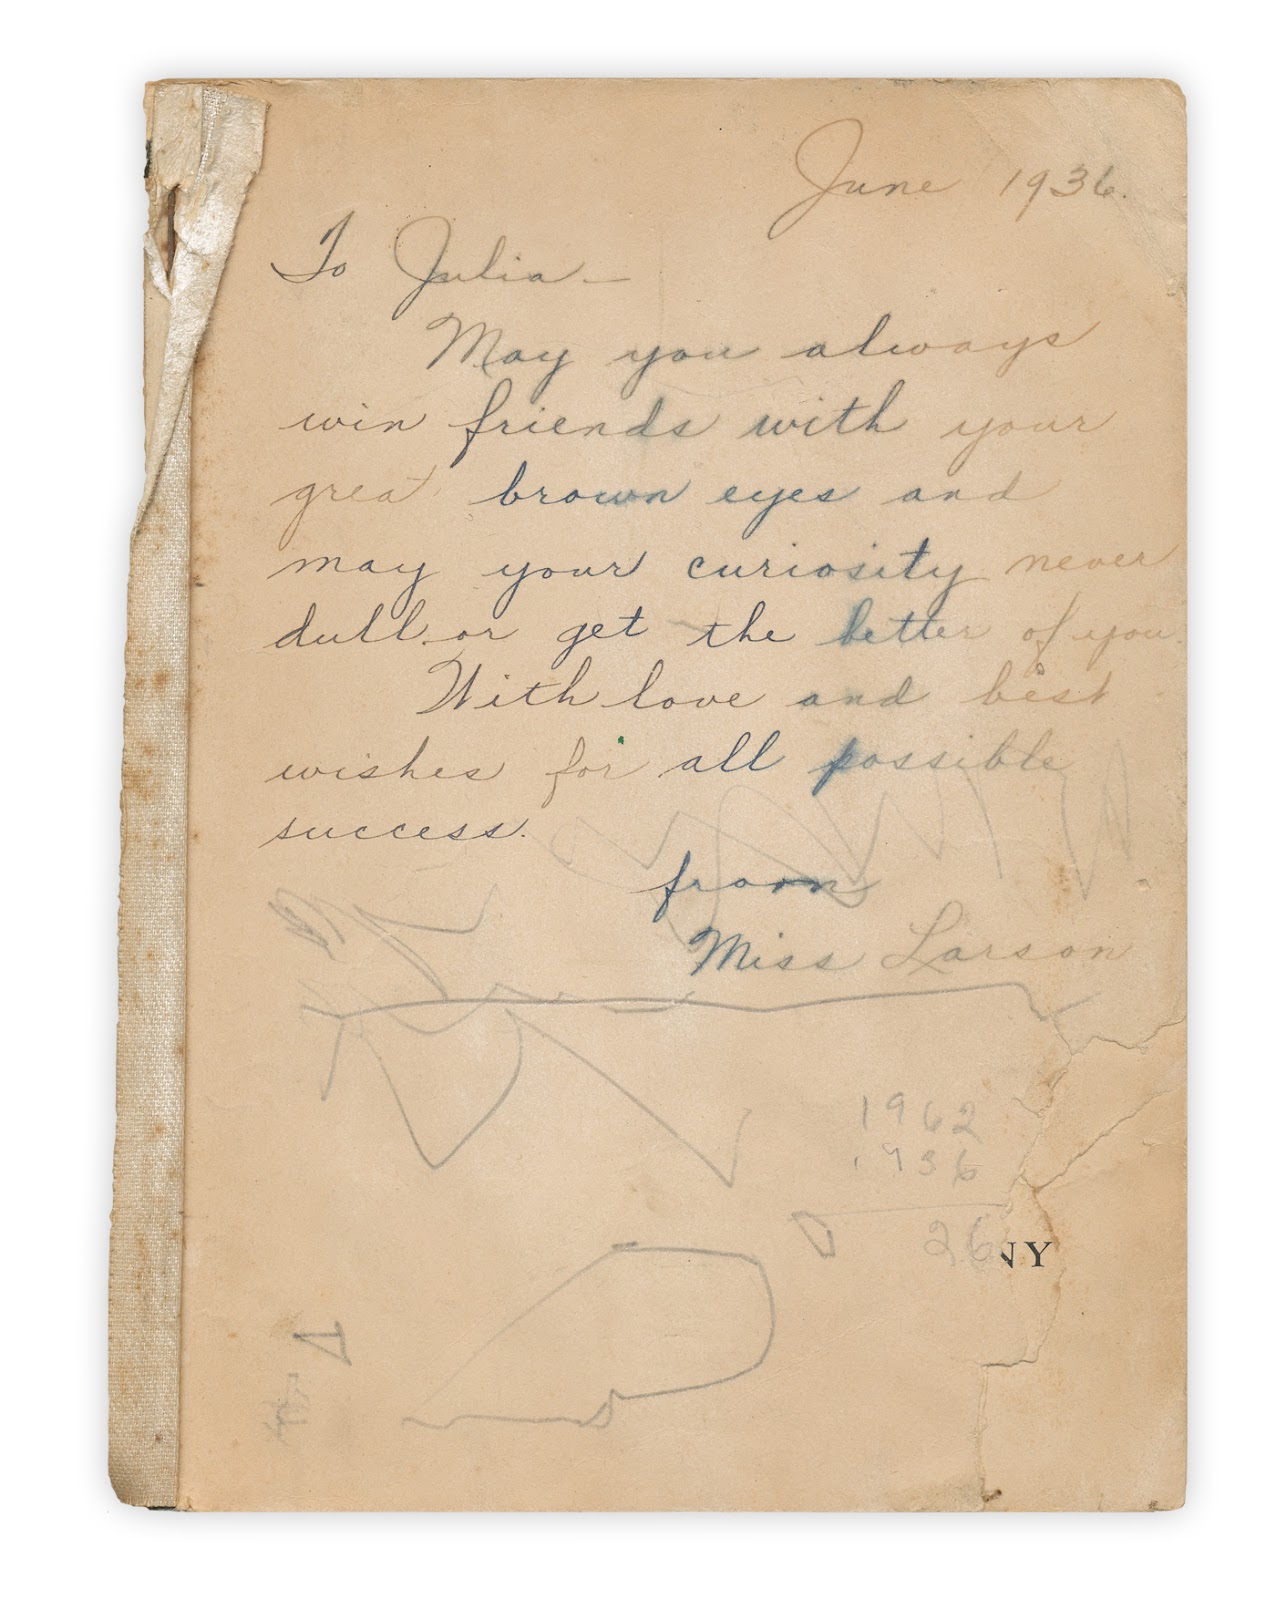 June 1936.
To Julia —
May you always
win friends with your
great brown eyes and
may your curiosity never
dull or get the better of you.
With love and best
wishes for all possible
success.
from
Miss Larson
1962
1936
26
NY